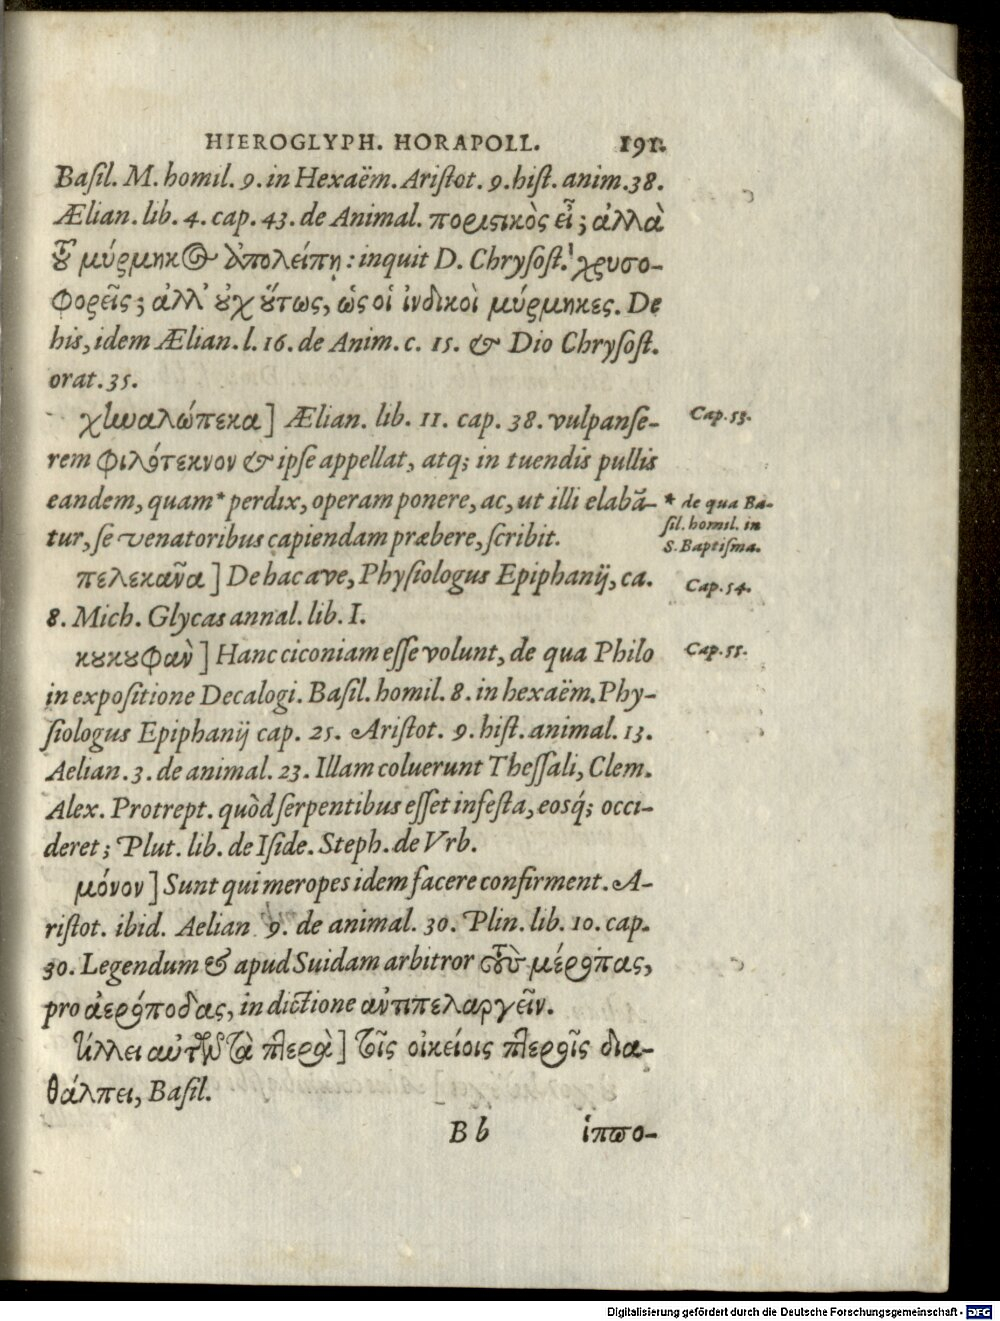 HIEROGLYPH. HORAPOLL. 191.
Basil. M. homil. 9. in Hexaëm. Aristot. 9. hist. anim. 38.
Ælian. lib. 4. cap. 43. de Animal. ποριστικὸς εἶ; ἀλλὰ
τοῦ μύρμηκος ἀπολείπῃ: inquit D. Chrysost. χρυσο-
φορεῖς; ἀλλ' οὐχ οὕτως, ὡς οἱ ἰνδικοὶ μύρμηκες. De
his, idem Ælian. l. 16. de Anim. c. 15. & Dio Chrysost.
orat. 35.
χηναλώπεκα] Ælian. lib. 11. cap. 38. vulpanse-
rem φιλότεκνον & ipse appellat, atq; in tuendis pullis
eandem, quam * perdix, operam ponere, ac, ut illi elabā-
tur, se venatoribus capiendam præbere, scribit.
πελεκᾶνα] De hac ave, Physiologus Epiphanij, ca.
8. Mich. Glycas annal. lib. I.
κουκουφὰν] Hanc ciconiam esse volunt, de qua Philo
in expositione Decalogi. Basil. homil. 8. in hexaëm. Phy-
siologus Epiphanij cap. 25. Aristot. 9. hist. animal. 13.
Aelian. 3. de animal. 23. Illam coluerunt Thessali, Clem.
Alex. Protrept. quòd serpentibus esset infesta, eosq́; occi-
deret; Plut. lib. de Iside. Steph. de Vrb.
μόνον] Sunt qui meropes idem facere confirment. A-
ristot. ibid. Aelian 9. de animal. 30. Plin. lib. 10. cap.
30. Legendum & apud Suidam arbitror τοὺς μέροπας,
pro ἀερόποδας, in dictione ἀντιπελαργεῖν.
τίλλει αὐτοῦ τὰ πτερὰ] τοῖς οἰκείοις πτεροῖς δια-
θάλπει, Basil.
B b ἱππο-
Cap. 53.
* de qua Ba-
sil. homil. in
S. Baptisma.
Cap. 54.
Cap. 55.
Digitalisierung gefördert durch die Deutsche Forschungsgemeinschaft - DFG